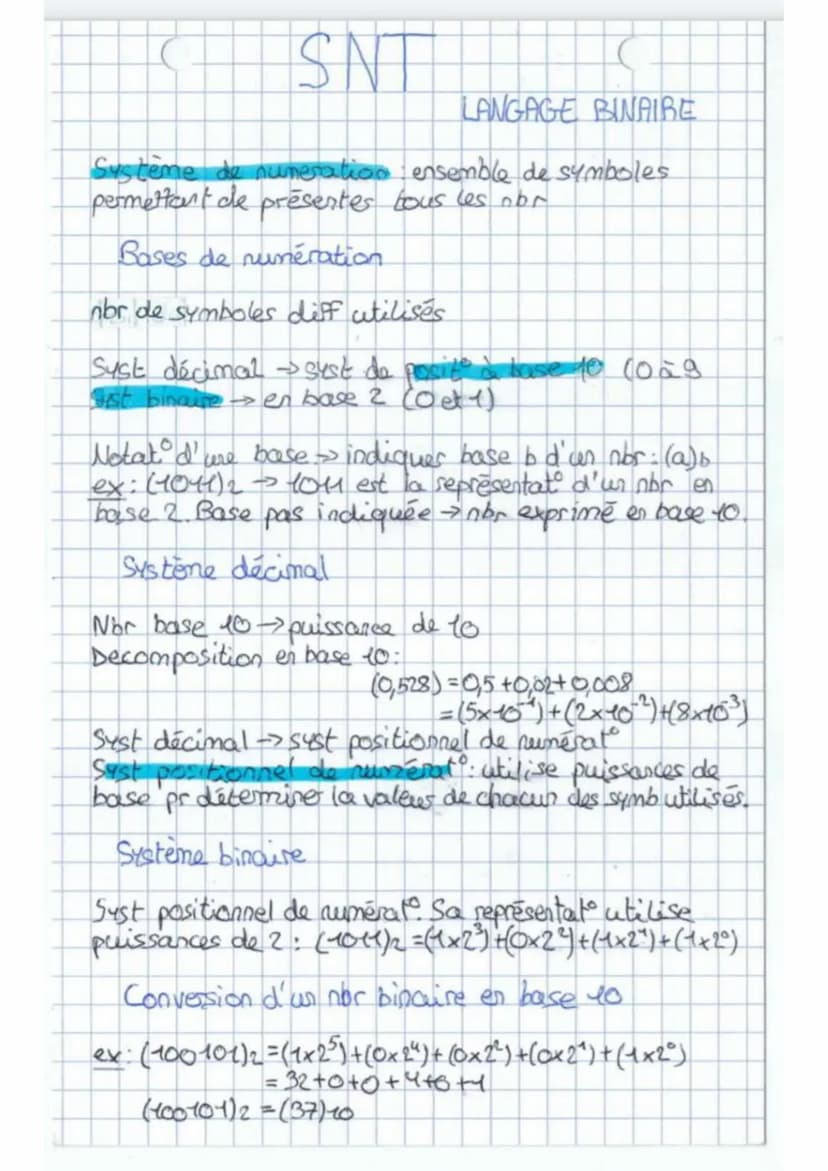 SNT
LANGAGE BINAIRE
Système de numeration : ensemble de symboles
permettant de présentes tous les nbr
Bases de numération
nbr de symboles diff utilisés
Syst décimal → syst de posit° à base 10 (0 à 9
Syst binaire → en base 2 (0 et 1)
Notat° d'une base → indiquer base b d'un nbr : (a)b
ex : (1011)2 → 1011 est la représentat° d'un nbr en
base 2. Base pas indiquée → nbr exprimé en base 10.
Système décimal
Nbr base 10 → puissance de 10
Decomposition en base 10 :
(0,528) = 0,5 + 0,02 + 0,008
= (5x10⁻¹) + (2x10⁻²) + (8x10⁻³)
Syst décimal → syst positionnel de numérat°
Syst positionnel de numérat° : utilise puissances de
base pr déterminer la valeur de chacun des symb utilisés.
Système binaire
Syst positionnel de numérat°. Sa représentat° utilise
puissances de 2 : (1011)2 = (1x2³) + (0x2²) + (1x2¹) + (1x2⁰)
Conversion d'un nbr binaire en base 10
ex : (100101)2 = (1x2⁵) + (0x2⁴) + (0x2²) + (0x2¹) + (1x2⁰)
= 32+0+0+4+0+1
(100101)2 = (37)10